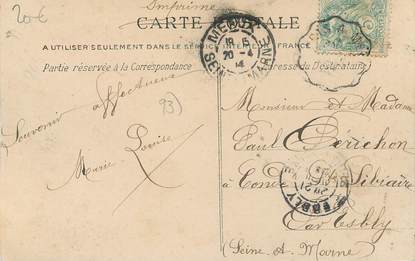 20€
Imprimé
CARTE POSTALE
A UTILISER SEULEMENT DANS LE SERVICE INTERIEUR FRANCE
Partie réservée à la Correspondance
Adresse du Destinataire
19 5
20 - 4
14
SEINE MARNE
93)
Souvenir affectueux
Marie Louise
Monsieur et Madame
Paul Périchon
à Condé Ste Libiaire
Par Esbly
(Seine-et-Marne)
ESBLY